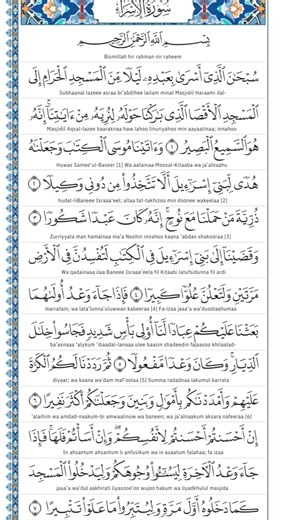 سُورَةُ الإِسْرَاءِ
بِسْمِ اللَّهِ الرَّحْمَٰنِ الرَّحِيمِ
Bismillah hir rahman nir raheem
سُبْحَٰنَ الَّذِىٓ أَسْرَىٰ بِعَبْدِهِۦ لَيْلًا مِّنَ الْمَسْجِدِ الْحَرَامِ إِلَى
Subhaanal lazeee asraa bi'abdihee lailam minal Masjidil Haraami ilal-
الْمَسْجِدِ الْأَقْصَا الَّذِى بَٰرَكْنَا حَوْلَهُۥ لِنُرِيَهُۥ مِنْ ءَايَٰتِنَآ ۚ إِنَّهُۥ
Masjidil Aqsal-lazee baaraknaa haw lahoo linuriyahoo min aayaatinaa; innahoo
هُوَ السَّمِيعُ الْبَصِيرُ ١ وَءَاتَيْنَا مُوسَى الْكِتَٰبَ وَجَعَلْنَٰهُ
Huwas Samee'ul-Baseer [1] Wa aatainaa Moosal-Kitaaba wa ja'alnaahu
هُدًى لِّبَنِىٓ إِسْرَٰٓءِيلَ أَلَّا تَتَّخِذُوا۟ مِن دُونِى وَكِيلًا ٢
hudal-liBaneee Israaa'eel; allaa tat-takhizoo min doonee wakeelaa [2]
ذُرِّيَّةَ مَنْ حَمَلْنَا مَعَ نُوحٍ ۚ إِنَّهُۥ كَانَ عَبْدًا شَكُورًا ٣
Zurriyyata man hamalnaa ma'a Noohin innahoo kaana 'abdan shakooraa [3]
وَقَضَيْنَآ إِلَىٰ بَنِىٓ إِسْرَٰٓءِيلَ فِى الْكِتَٰبِ لَتُفْسِدُنَّ فِى الْأَرْضِ
Wa qadainaaa ilaa Baneee Israaa'eela fil Kitaabi latufsidunna fil ardi
مَرَّتَيْنِ وَلَتَعْلُنَّ عُلُوًّا كَبِيرًا ٤ فَإِذَا جَآءَ وَعْدُ أُولَىٰهُمَا
marratain; wa lata'lunna'uluwwan kabeeraa [4] Fa-izaa jaaa'a wa'duoolaahumaa
بَعَثْنَا عَلَيْكُمْ عِبَادًا لَّنَآ أُو۟لِى بَأْسٍ شَدِيدٍ فَجَاسُوا۟ خِلَٰلَ
ba'asnaaa 'alykum 'ibaadal-lanaaa ulee baasin shadeedin fajaasoo khilaalad-
الدِّيَارِ ۚ وَكَانَ وَعْدًا مَّفْعُولًا ٥ ثُمَّ رَدَدْنَا لَكُمُ الْكَرَّةَ
diyaar; wa kaana wa'dam maf'oolaa [5] Summa radadnaa lakumul karrata
عَلَيْهِمْ وَأَمْدَدْنَٰكُم بِأَمْوَٰلٍ وَبَنِينَ وَجَعَلْنَٰكُمْ أَكْثَرَ نَفِيرًا ٦
'alaihim wa amdad-naakum-bi amwaalinuw wa baneen; wa ja'alnaakum aksara nafeeraa [6]
إِنْ أَحْسَنتُمْ أَحْسَنتُمْ لِأَنفُسِكُمْ ۖ وَإِنْ أَسَأْتُمْ فَلَهَا ۚ فَإِذَا
In ahsantum ahsantum li anfusikum wa in asaatum falahaa; fa izaa
جَآءَ وَعْدُ الْءَاخِرَةِ لِيَسُۥٓـُٔوا۟ وُجُوهَكُمْ وَلِيَدْخُلُوا۟ الْمَسْجِدَ
jaaa'a wa'dul aakhirati liyasooo'oo wujoo hakum wa liyadkhulul masjida
كَمَا دَخَلُوهُ أَوَّلَ مَرَّةٍ وَلِيُتَبِّرُوا۟ مَا عَلَوْا۟ تَتْبِيرًا ٧